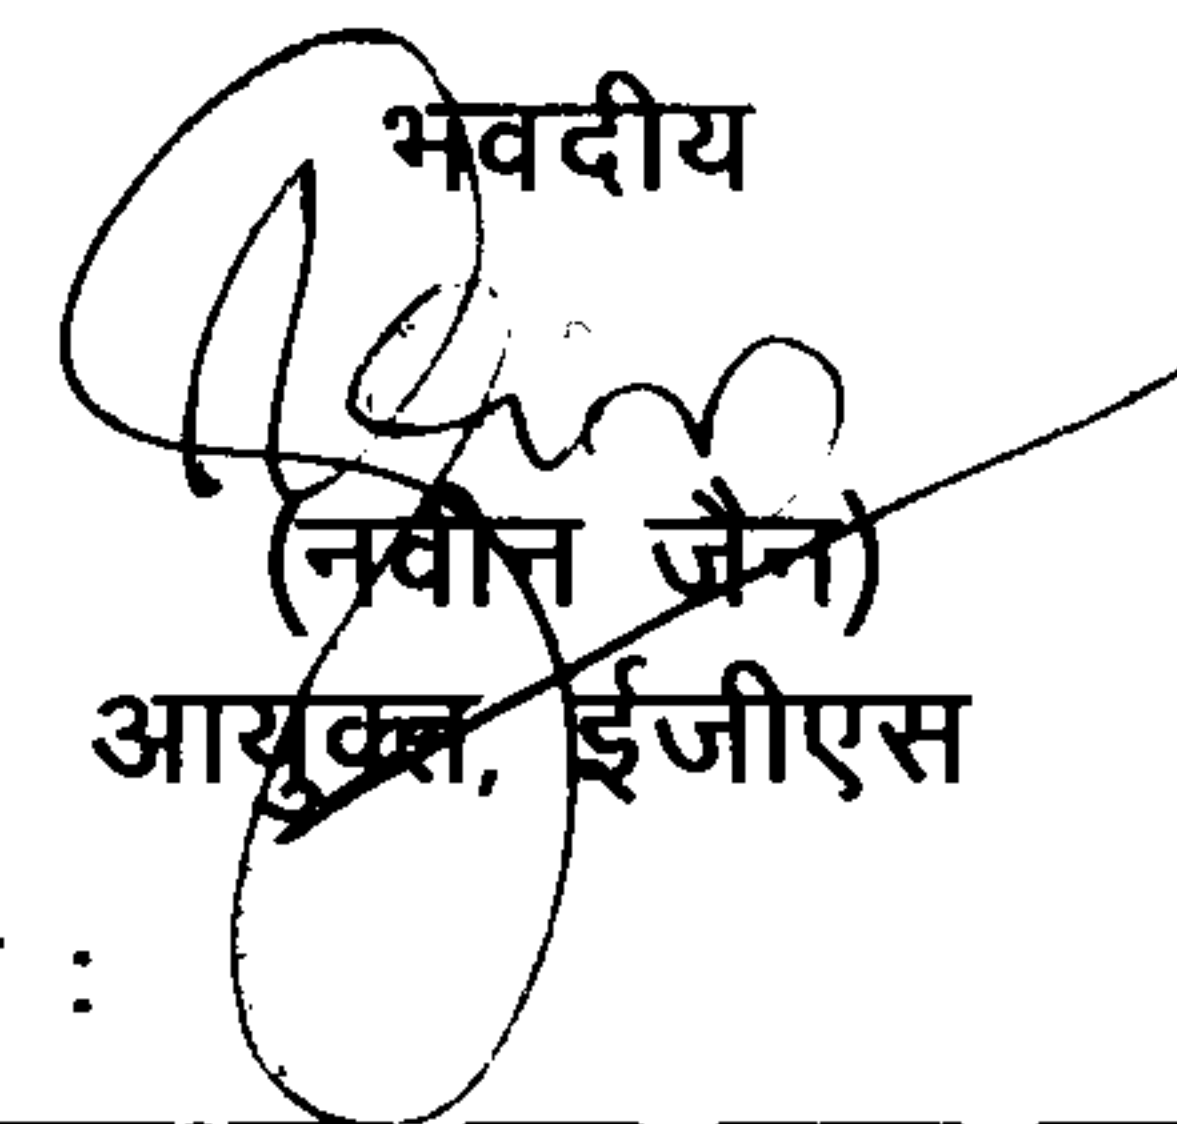 भवदीय
(नवीन जैन)
आयुक्त, ईजीएस
: